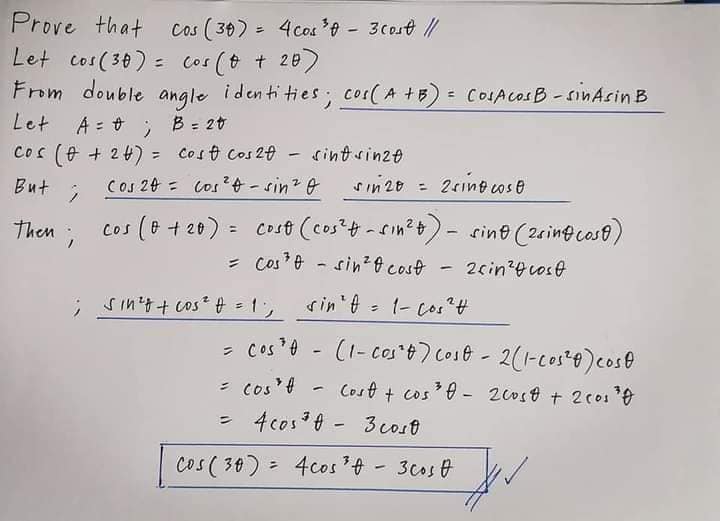 Prove that cos(3θ) = 4cos³θ - 3cosθ //
Let cos(3θ) = cos(θ + 2θ)
From double angle identities; cos(A+B) = cosAcosB - sinAsinB
Let A = θ ; B = 2θ
cos(θ + 2θ) = cosθ cos2θ - sinθ sin2θ
But ; cos2θ = cos²θ - sin²θ sin2θ = 2sinθcosθ
Then ; cos(θ + 2θ) = cosθ(cos²θ - sin²θ) - sinθ(2sinθcosθ)
= cos³θ - sin²θcosθ - 2sin²θcosθ
; sin²θ + cos²θ = 1 ; sin²θ = 1 - cos²θ
= cos³θ - (1 - cos²θ)cosθ - 2(1 - cos²θ)cosθ
= cos³θ - cosθ + cos³θ - 2cosθ + 2cos³θ
= 4cos³θ - 3cosθ
cos(3θ) = 4cos³θ - 3cosθ // ✓